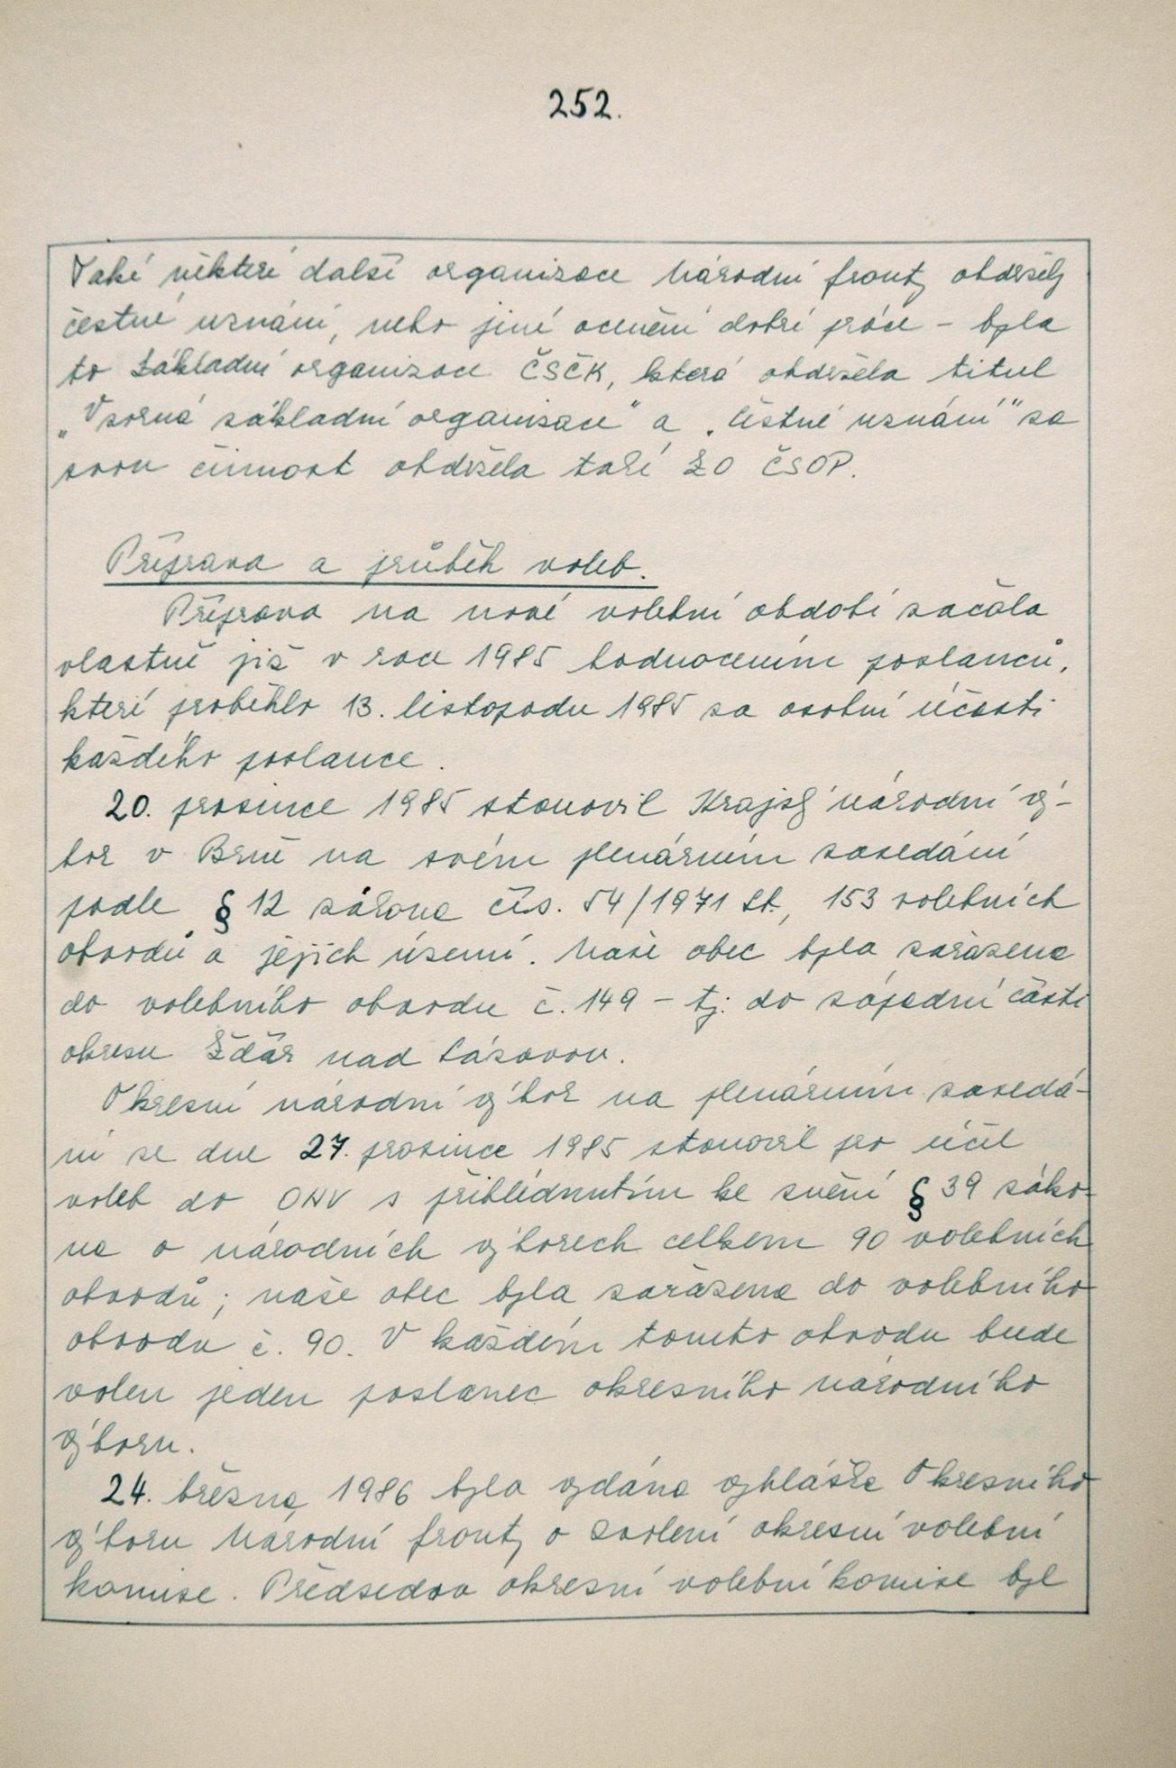 252.
Také některé další organizace Národní fronty obdržely
čestné uznání, nebo jiné ocenění dobré práce - byla
to Základní organizace ČSČK, která obdržela titul
„Vzorná základní organizace" a „čestné uznání" za
svou činnost obdržela také ZO ČSOP.
Příprava a průběh voleb.
Příprava na nové volební období začala
vlastně již v roce 1985 hodnocením poslanců,
které proběhlo 13. listopadu 1985 za osobní účasti
každého poslance.
20. prosince 1985 stanovil Krajský národní vý-
bor v Brně na svém plenárním zasedání
podle § 12 zákona čís. 54/1971 Sb., 153 volebních
obvodů a jejich území. Naše obec byla zařazena
do volebního obvodu č. 149 - tj. do západní části
okresu Žďár nad Sázavou.
Okresní národní výbor na plenárním zasedá-
ní se dne 27. prosince 1985 stanovil pro účel
voleb do ONV s přihlédnutím ke znění § 39 záko-
na o národních výborech celkem 90 volebních
obvodů; naše obec byla zařazena do volebního
obvodu č. 90. V každém tomto obvodu bude
volen jeden poslanec okresního národního
výboru.
24. března 1986 byla vydána vyhláška Okresního
výboru Národní fronty o zvolení okresní volební
komise. Předsedou okresní volební komise byl